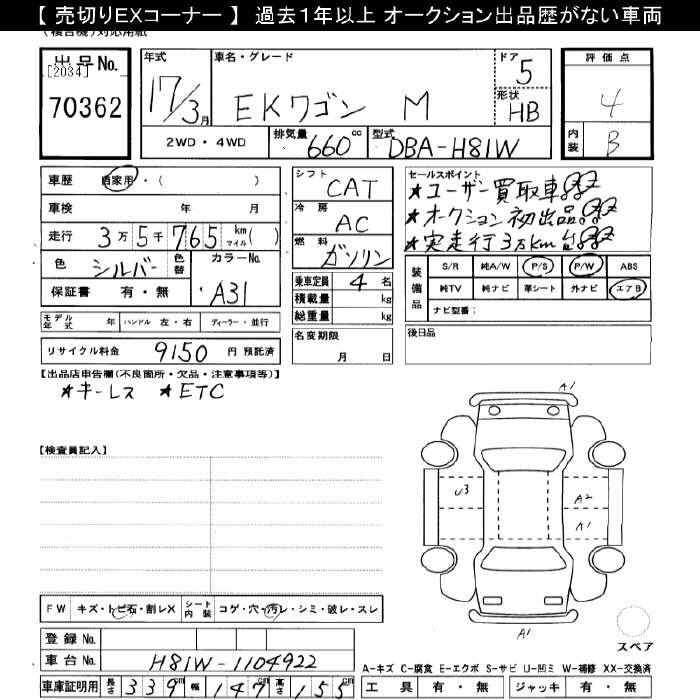 【 売切りEXコーナー 】 過去1年以上 オークション出品歴がない車両
(複合機)対応用紙
出品No.
[2034]
70362
年式
17/3月
車名・グレード
EKワゴン M
ドア
5
形状
HB
2WD・4WD
排気量
660cc
型式
DBA-H81W
評価点
4
内装
B
車歴 自家用・( )
車検 年 月
走行 3万5千765 km マイル( )
色 シルバー 色替
カラーNo.
A31
保証書 有・無
シフト
CAT
冷房
AC
燃料
ガソリン
乗車定員 4 名
積載量 kg
総重量 kg
セールスポイント
★ユーザー買取車
★オークション初出品
★実走行3万km台
装備品
S/R 純A/W P/S P/W ABS
純TV 純ナビ 革シート 外ナビ エアB
ナビ型番:
モデル年式 年 ハンドル 左・右 ディーラー・並行
名変期限
月 日
後日品
リサイクル料金 9150 円 預託済
【出品店申告欄(不良箇所・欠品・注意事項等)】
★キーレス ★ETC
【検査員記入】
A1
U3
A2
A1
A1
スペア
FW キズ・トビ石・割レX シート内装 コゲ・穴・汚レ・シミ・破レ・スレ
登録No.
車台No. H81W-1104922
車庫証明用 長さ 339cm 幅 147cm 高さ 155cm
A-キズ C-腐食 E-エクボ S-サビ U-凹ミ W-補修 XX-交換済
工具 有・無 ジャッキ 有・無